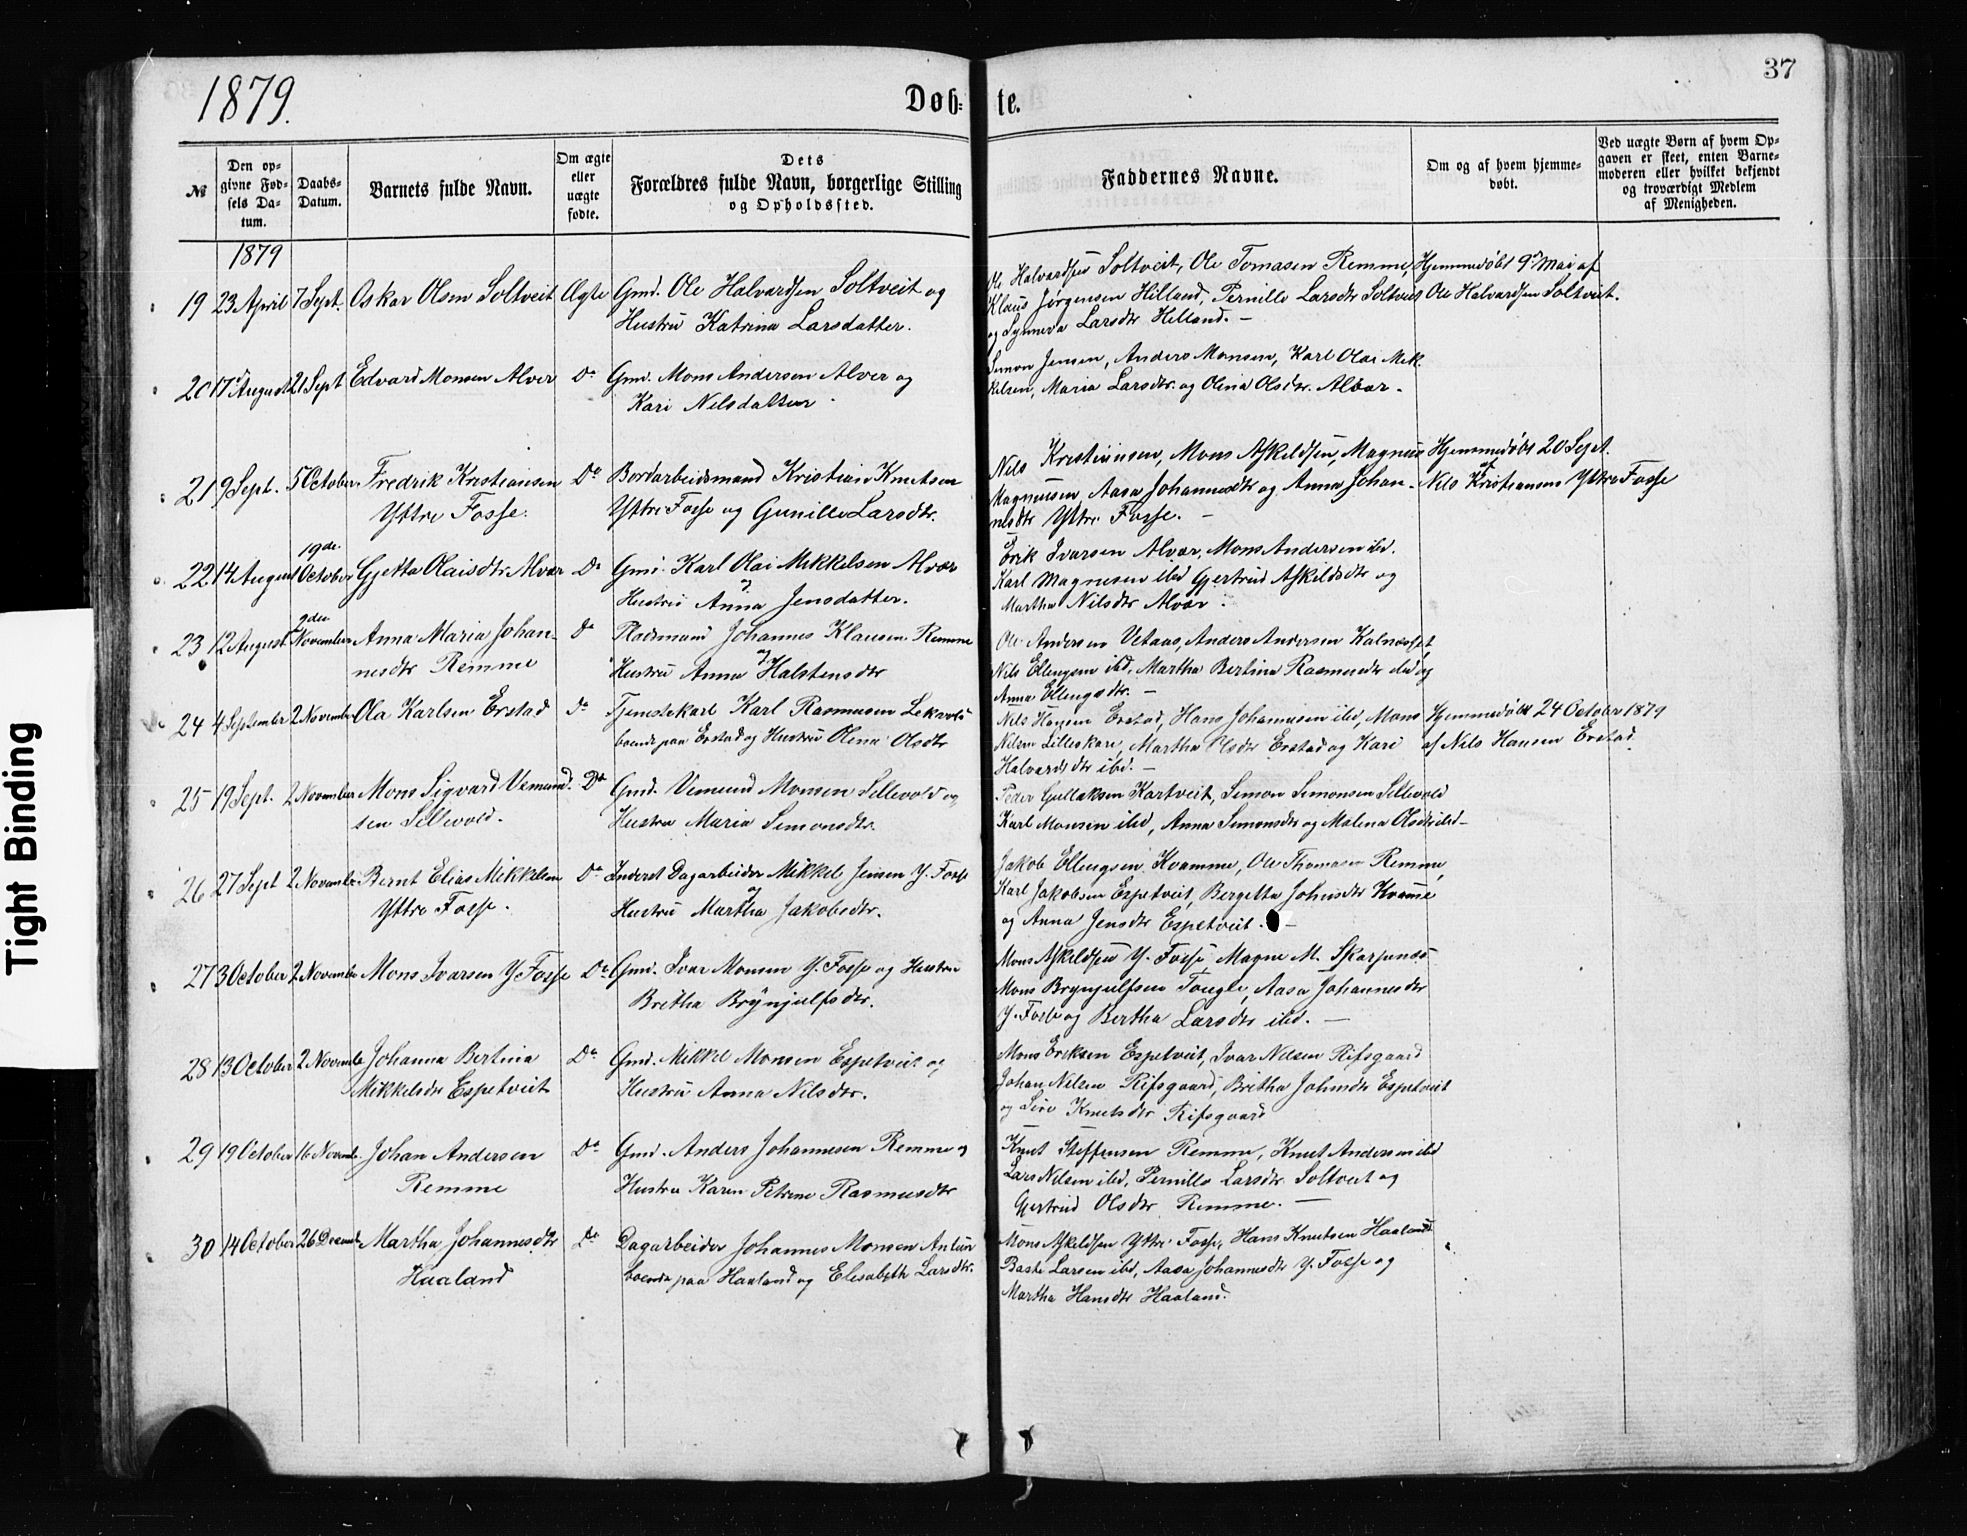 37
1879.
Døb- te.
№
Den op-
givne Fød-
sels Da-
tum.
Daabs-
Datum.
Barnets fulde Navn.
Om ægte
eller
uægte
fødte.
Dets
Forældres fulde Navn, borgerlige Stilling
og Opholdssted.
Faddernes Navne.
Om og af hvem hjemme-
døbt.
Ved uægte Børn af hvem Op-
gaven er skeet, enten Barne-
moderen eller hvilket bekjendt
og troværdigt Medlem
af Menigheden.
1879
19 23 April 7 Sept. Oskar Olsen Soltveit Ægte
Gmd. Ole Halvardsen Soltveit og
Hustru Katrina Larsdatter.
Ole Halvardsen Soltveit, Ole Tomasen Remme,
Klaus Jørgensen Hilland, Pernille Larsdtr Soltveit
og Synneva Larsdtr Helland. –
Hjemmedøbt 9de Mai af
Ole Halvardsen Soltveit.
20 17 August 21 Sept Edvard Monsen Alver Do
Gmd. Mons Andersen Alver og
Kari Nilsdatter
Simon Jensen, Anders Monsen, Karl Olai Mik
kelsen, Maria Larsdtr. og Olina Olsdtr. Alvær.
21 9 Sept. 5 October Fredrik Kristiansen
Yttre Fosse.
Do
Bordarbeidsmand Kristian Knutsen
Yttre Fosse og Gunille Larsdtr.
Nils Kristiansen, Mons Askeldsen, Magnus
Magnusen, Aasa Johannesdtr og Anna Johan-
nesdtr Yttre Fosse. –
Hjemmedøbt 20 Sept.
af
Nils Kristiansen Yttre Fosse
22 14 August 19de October Gjetta Olaisdtr Alvær Do
Gmd. Karl Olai Mikkelsen Alvær
og
Hustru Anna Jensdatter.
Erik Ivarsen Alvær, Mons Andersen ibd.
Karl Magnesen ibd Gjertrud Askildsdtr og
Martha Nilsdtr Alvær.
23 12 August 9de November Anna Maria Johan-
nesdtr Remme
Do
Pladsmand Johannes Klausen Remme
og
Hustru Anna Halstensdtr
Ole Andersen Vetaas, Anders Andersen Kalnesset,
Nils Ellingsen ibd, Martha Bertina Rasmusdtr ibd og
Anna Ellingsdtr. –
24 4 September 2 November Ola Karlsen Erstad Do
Tjenestekarl Karl Rasmusen Lekvold
boende paa Erstad og Hustru Olina Olsdtr
Nils Hansen Erstad, Hans Johannesen ibd, Mons
Nilsen Lilleskare, Martha Olsdtr Erstad og Kari
Halvardsdtr ibd. –
Hjemmedøbt 24 October 1879
af Nils Hansen Erstad
25 19 Sept. 2 November Mons Sigvard Vemund-
sen Sellevold.
Do
Gmd. Vemund Monsen Sellevold og
Hustru Maria Simonsdtr.
Peder Gullaksen Kartveit, Simon Simonsen Sellevold
Karl Monsen ibd, Anna Simonsdtr og Malena Olsdtr ibd –
26 27 Sept 2 November Bernt Elias Mikkelsen
Yttre Fosse.
Do
Inderst Dagarbeider Mikkel Jensen Y. Fosse
og
Hustru Martha Jakobsdtr.
Jakob Ellingsen Kvamme, Ole Thomasen Remme,
Karl Jakobsen Espetveit, Bergetta Johnsdtr Kvamme
og Anna Jensdtr Espetveit. –
27 3 October 2 November Mons Ivarsen Y. Fosse Do
Gmd. Ivar Monsen Y. Fosse og Hustru
Bretha Brynjulfsdtr.
Mons Askeldsen Y. Fosse Magne M. Skarpenes
Mons Brynjulfsen Tougle, Aasa Johannesdtr
Y. Fosse og Bertha Larsdtr ibd. –
28 13 October 2 November Johanna Bertina
Mikkelsdtr Espetveit
Do
Gmd. Mikkel Monsen Espetveit og
Hustru Anna Nilsdtr.
Mons Eriksen Espetveit, Ivar Nilsen Rifsgaard
Johan Nilsen Rifsgaard, Bretha Johnsdtr Espetveit
og Sire Knutsdtr Rifsgaard
29 19 October 16 Novemb. Johan Andersen
Remme
Do
Gmd. Anders Johannesen Remme og
Hustru Karen Petrine Rasmusdtr
Knut Steffensen Remme, Knut Andersen ibd
Lars Nilsen ibd, Pernille Larsdtr Soltveit og
Gjertrud Olsdtr Remme. –
30 14 October 26 Decemb. Martha Johannesdtr
Haaland
Do
Dagarbeider Johannes Monsen Antun
boende paa Haaland og Elisabeth Larsdtr.
Mons Askeldsen Yttre Fosse, Hans Knutsen Haaland
Baste Larsen ibd, Aasa Johannesdtr Y. Fosse og
Martha Hansdtr Haaland.
Tight Binding